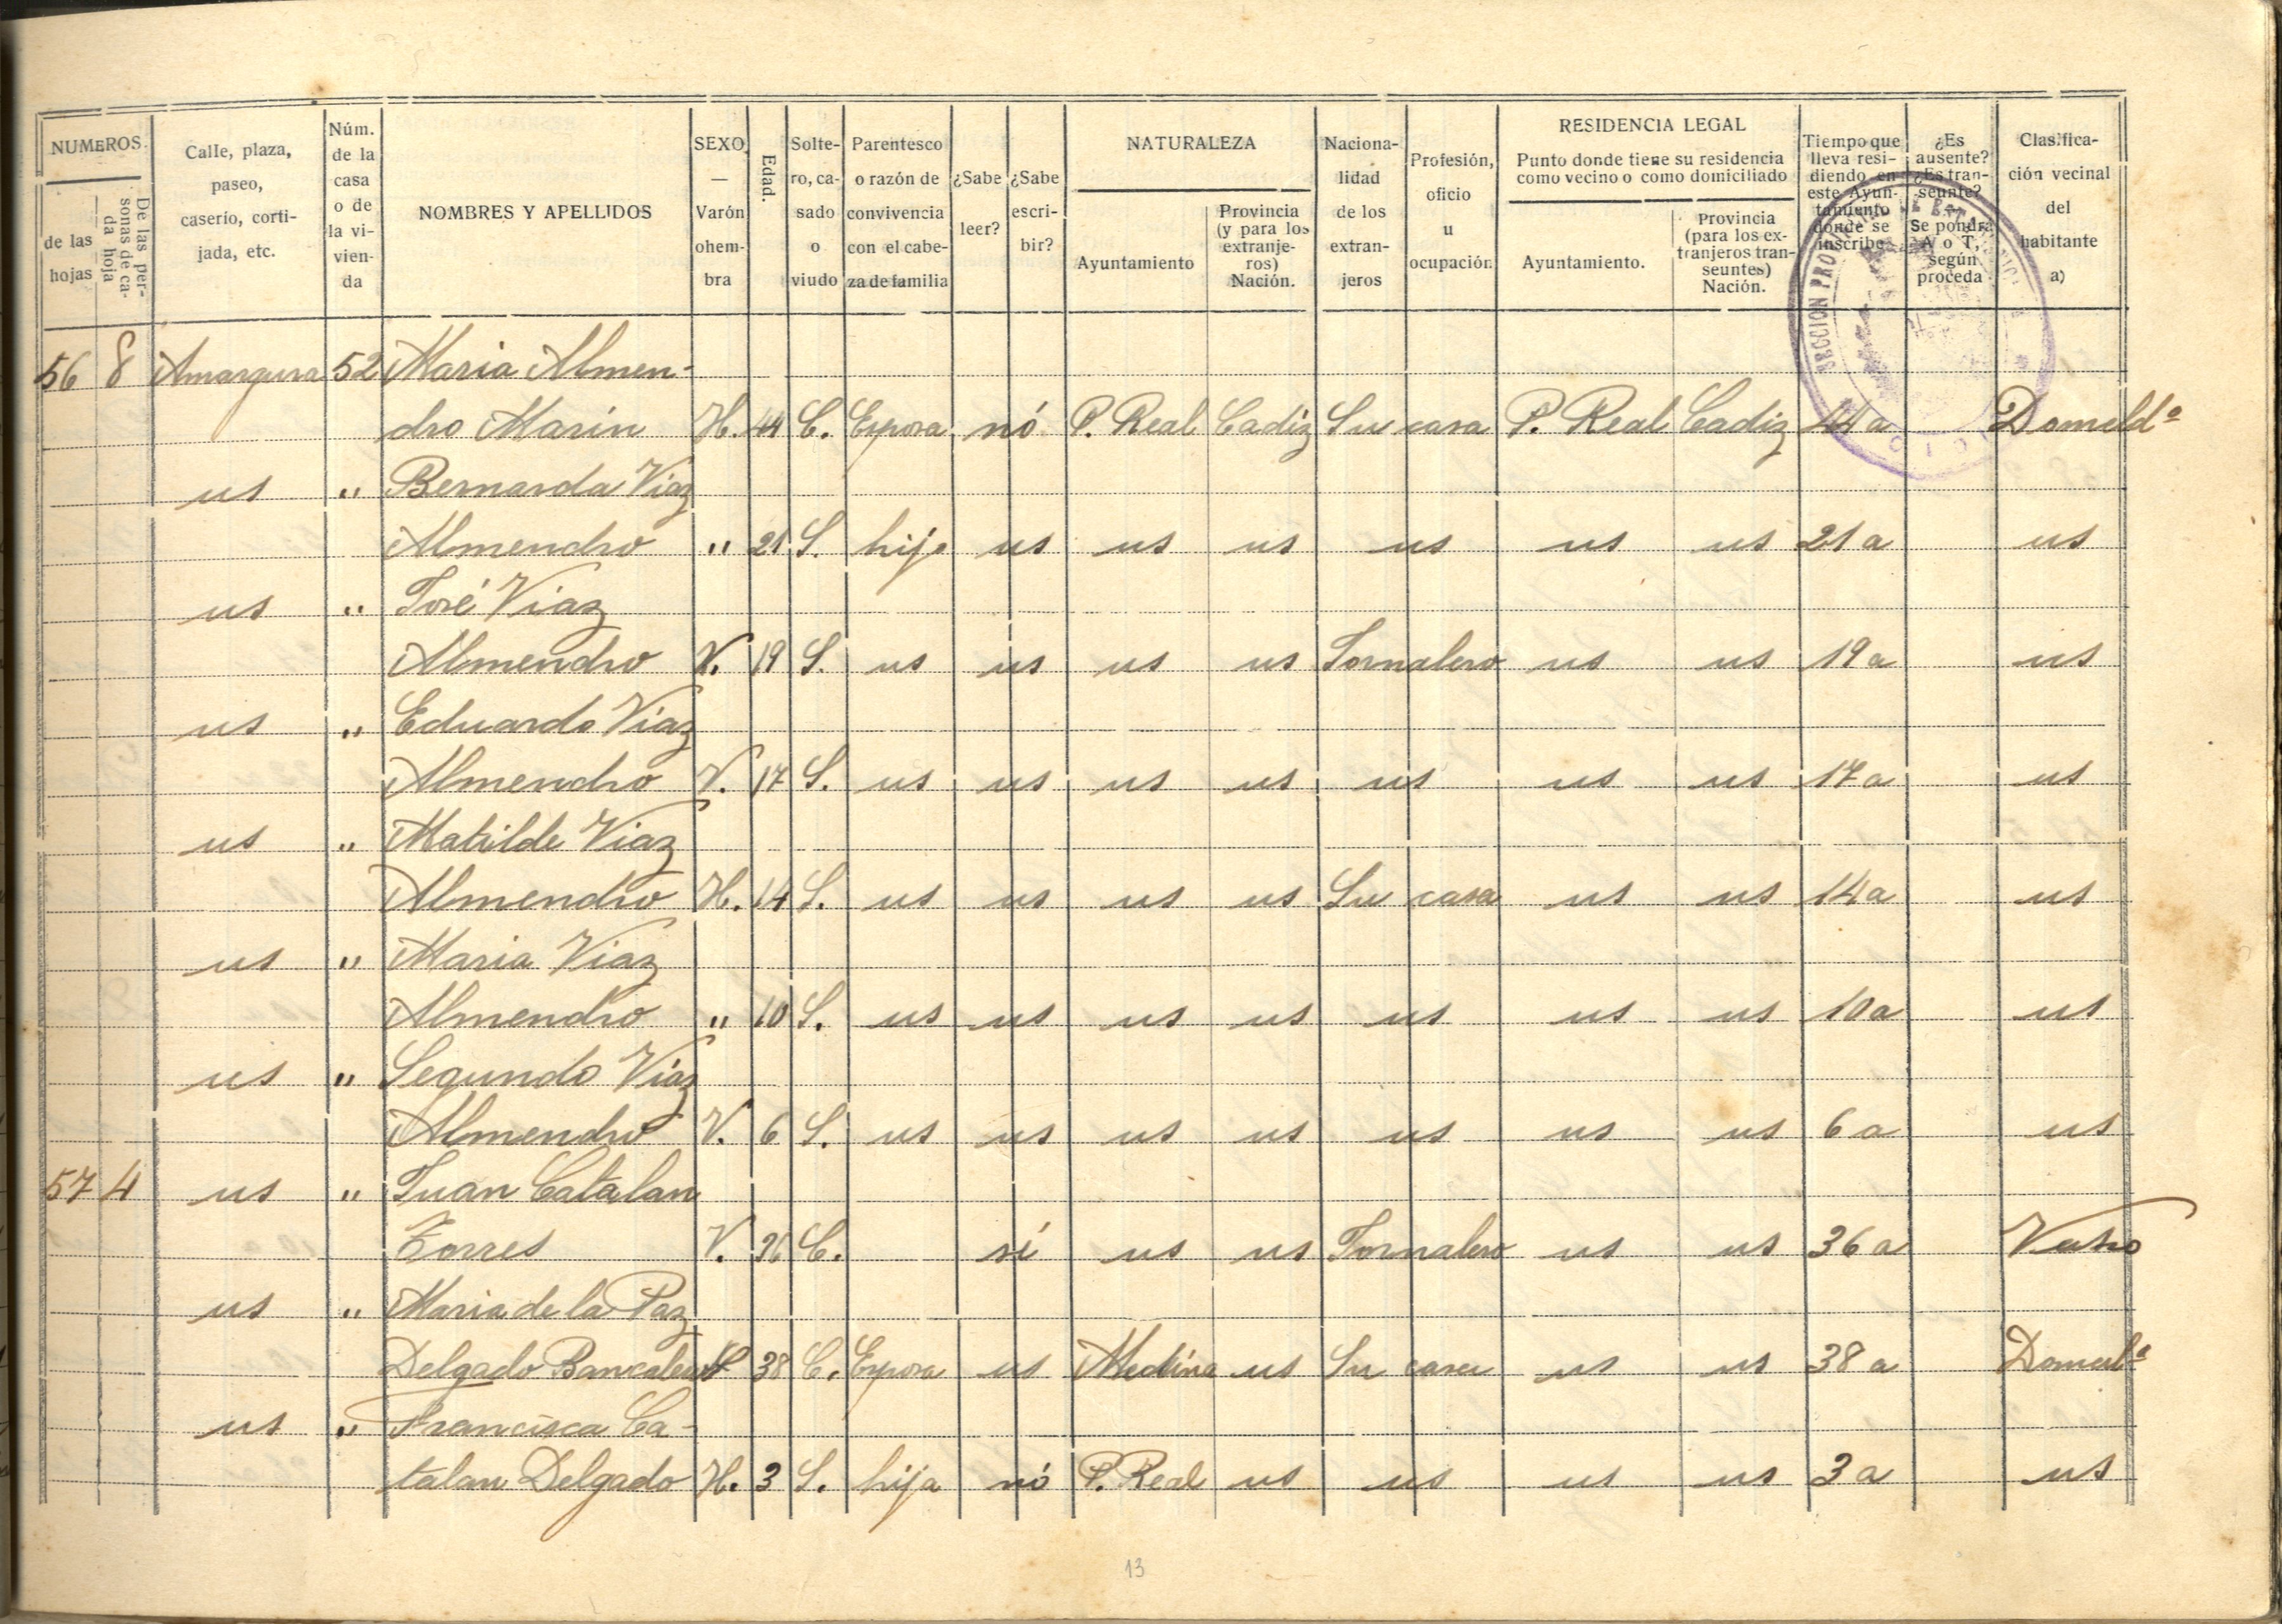 NUMEROS
de las hojas
De las personas de cada hoja
Calle, plaza, paseo, caserío, cortijada, etc.
Núm. de la casa o de la vivienda
NOMBRES Y APELLIDOS
SEXO — Varón ohembra
Edad.
Soltero, casado o viudo
Parentesco o razón de convivencia con el cabeza de familia
¿Sabe leer?
¿Sabe escribir?
NATURALEZA
Ayuntamiento
Provincia (y para los extranjeros) Nación.
Nacionalidad de los extranjeros
Profesión, oficio u ocupación
RESIDENCIA LEGAL
Punto donde tiene su residencia como vecino o como domiciliado
Ayuntamiento.
Provincia (para los extranjeros transeuntes) Nación.
Tiempo que lleva residiendo en este Ayuntamiento donde se inscribe
¿Es ausente? ¿Es transeunte? Se pondrá A o T, según proceda
Clasificación vecinal del habitante a)
56 8 Amargura 52 Maria Almen-
dro Marin H. 44 C. Esposa nó P. Real Cadiz Su casa P. Real Cadiz 44 a Domcldº
us " Bernarda Viaz
Almendro " 21 S. hijo us us us us us us 21 a us
us " José Viaz
Almendro V. 19 S. us us us us Jornalero us us 19 a us
us " Eduardo Viaz
Almendro V. 17 S. us us us us us us us 17 a us
us " Matilde Viaz
Almendro H. 14 S. us us us us Su casa us us 14 a us
us " Maria Viaz
Almendro " 10 S. us us us us us us us 10 a us
us " Segundo Viaz
Almendro V. 6 S. us us us us us us us 6 a us
57 4 us " Juan Catalan
Torres V. C. sí us us Jornalero us us 36 a
us " Maria de la Paz
Delgado 38 C. Esposa us Medina us Su casa us us 38 a
us " Francisca Ca-
talan Delgado H. 3 S. hija nó P. Real us us us us 3 a us
13